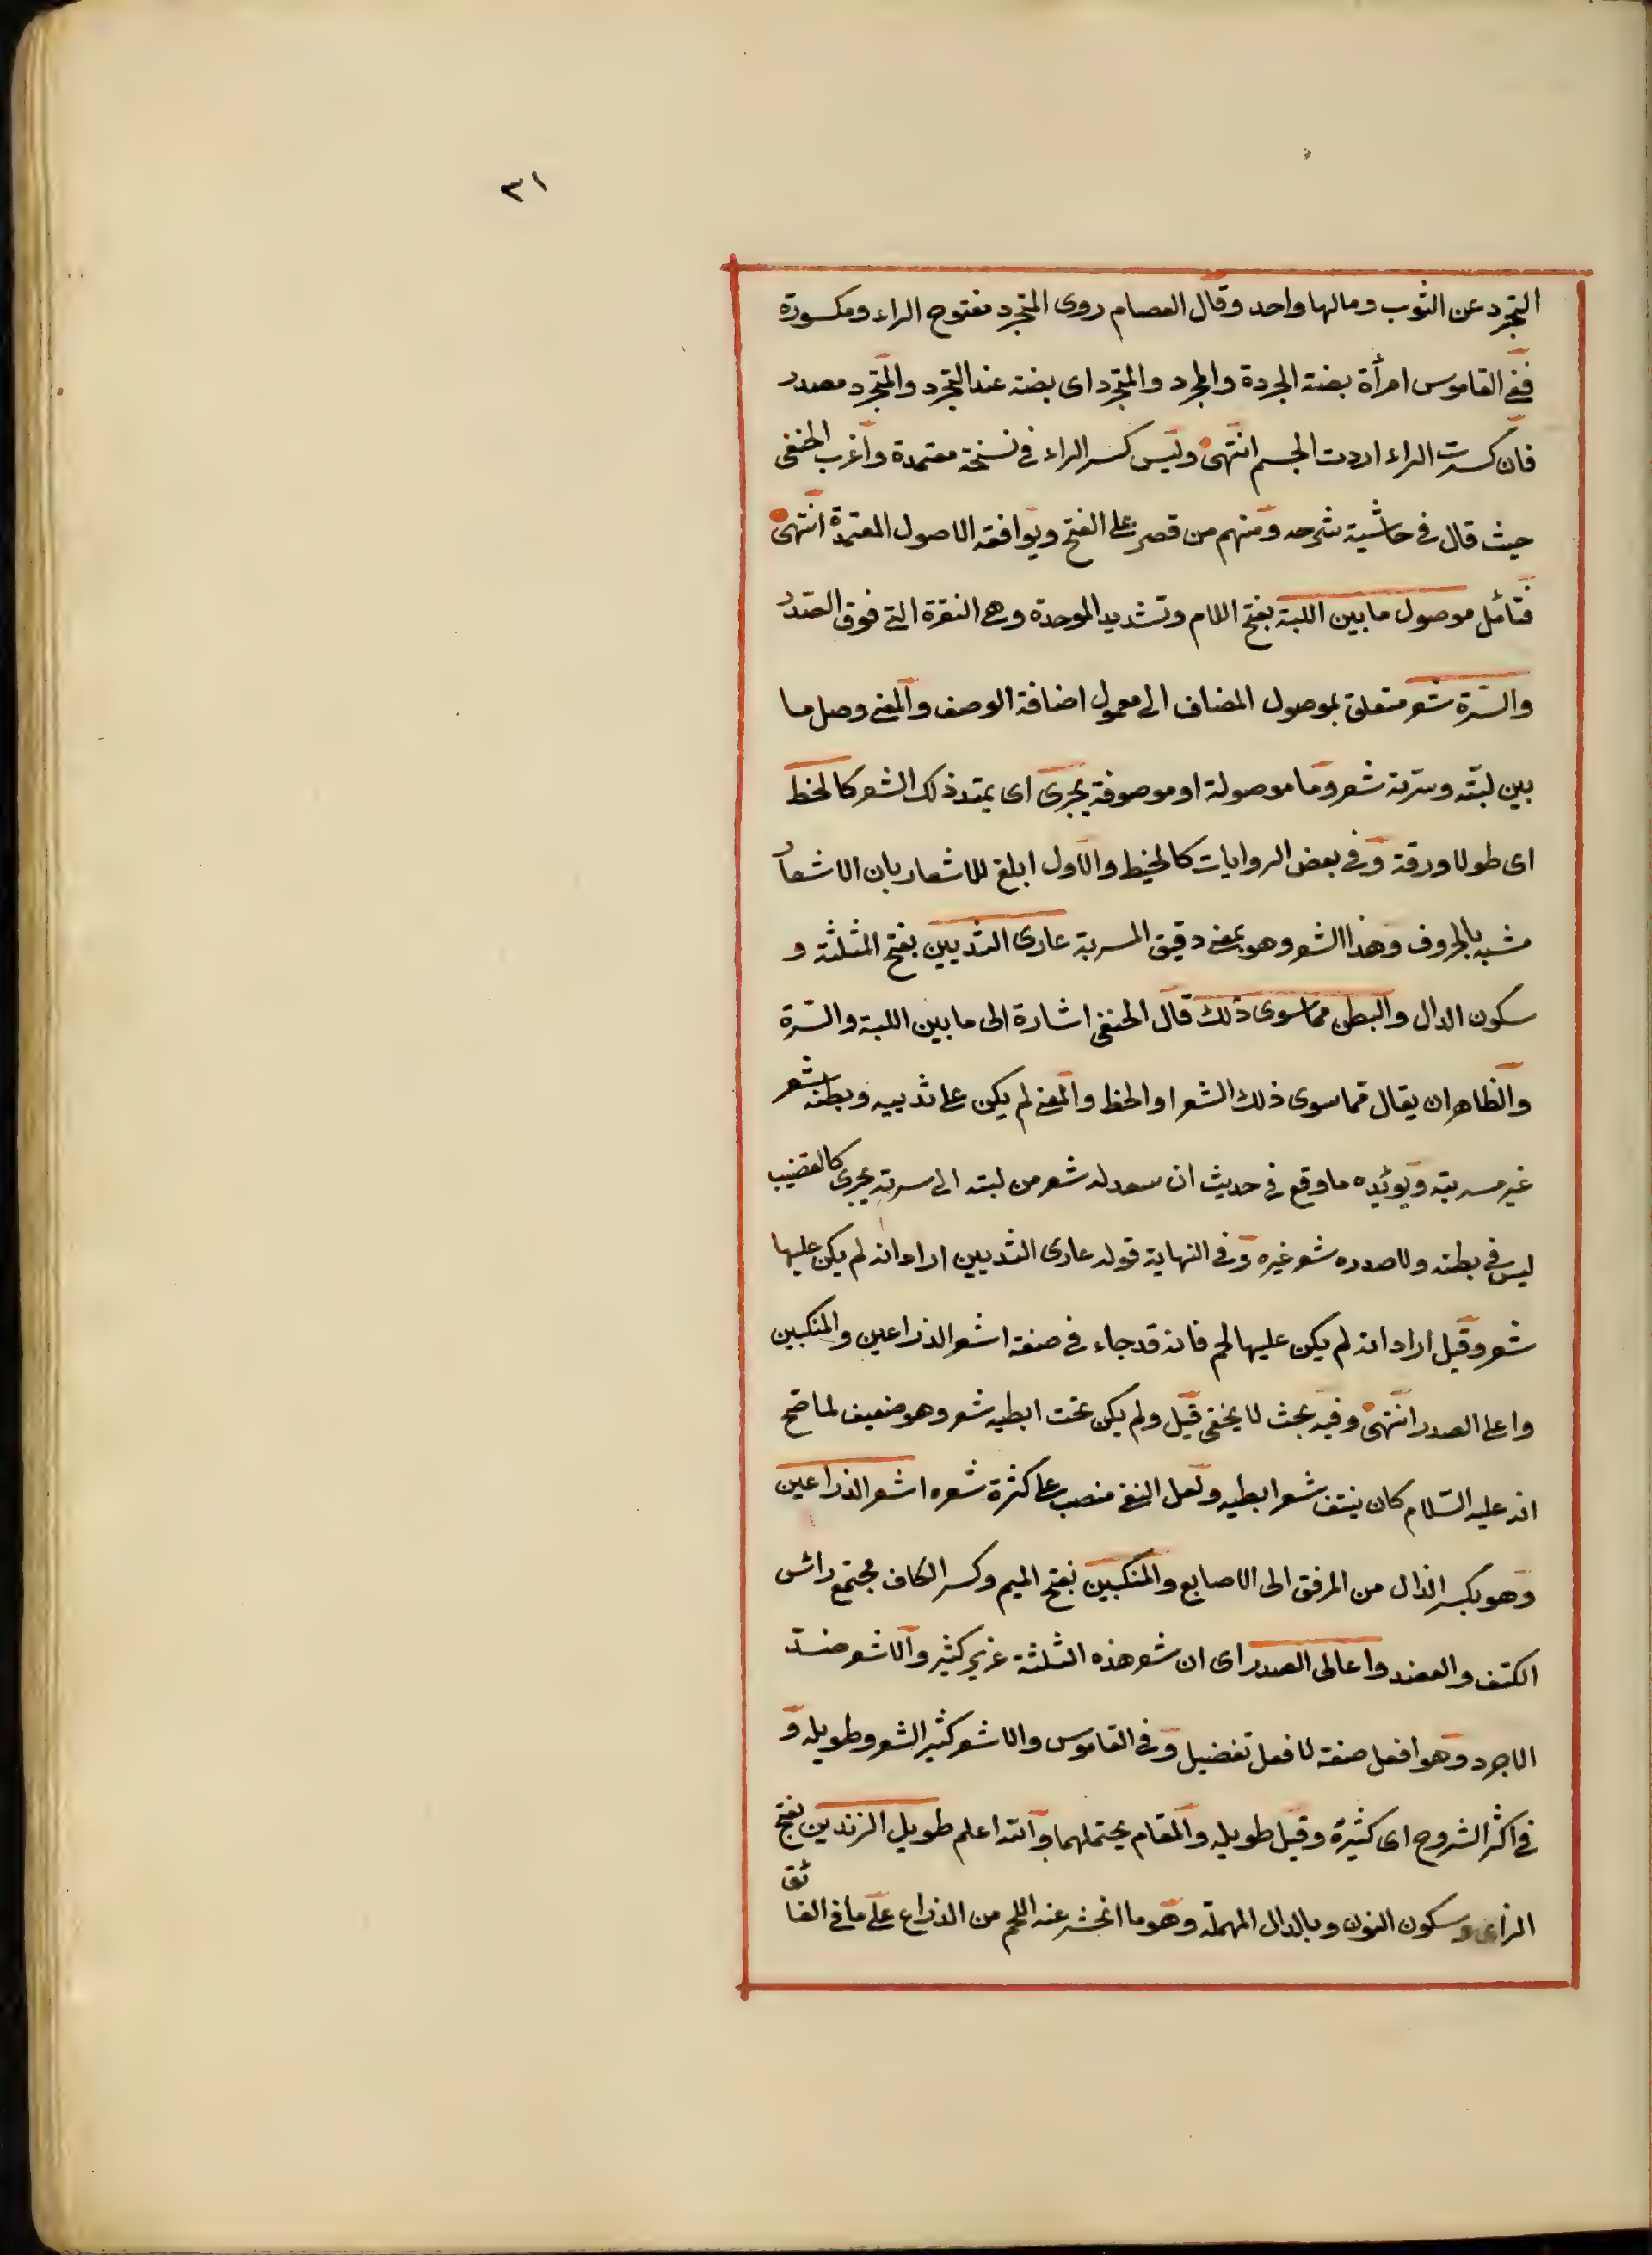 ٣١
التجرد عن الثوب ومالها واحد وقال العصام روى المتجرد مفتوح الراء ومكسورة
ففى القاموس امرأة بضة الجردة والمجرد والمتجرد اى بضة عند التجرد والمتجرد مصدر
فان كسرت الراء اردت الجسم انتهى وليس كسر الراء فى نسخة معتمدة واغرب الحنفى
حيث قال فى حاشية شرحه ومنهم من قصر على الفتح ويوافقه الاصول المعتمدة انتهى
فتأمل موصول ما بين اللبة بفتح اللام وتشديد الموحدة وهى النقرة التى فوق الصدر
والسرة شعر متعلق بموصول المضاف الى معمول اضافة الوصف والمعنى وصل ما
بين لبته وسرته شعر وما موصولة او موصوفة يجرى اى يمتد ذلك الشعر كالخط
اى طولا ورقة وفى بعض الروايات كالخيط والاول ابلغ للاشعار بان الاشعار
مشبه بالحروف وهذا الشعر وهو بمعنى دقيق المسربة عارى الثديين بفتح المثلثة و
سكون الدال والبطن مما سوى ذلك قال الحنفى اشارة الى ما بين اللبة والسرة
والظاهر ان يقال مما سوى ذلك الشعر او الخط والمعنى لم يكن على ثدييه وبطنه شعر
غير مسربته ويؤيده ما وقع فى حديث ابن سعد له شعر من لبته الى سرته يجرى كالقضيب
ليس فى بطنه ولا صدره شعر غيره وفى النهاية قوله عارى الثديين اراد انه لم يكن عليها
شعر وقيل اراد انه لم يكن عليها لحم فانه قد جاء فى صفته اشعر الذراعين والمنكبين
واعلى الصدر انتهى وفيه بحث لا يخفى قيل ولم يكن تحت ابطيه شعر وهو ضعيف لما صح
انه عليه السلام كان ينتف شعر ابطيه ولعل النفى منصب على كثرة شعره اشعر الذراعين
وهو بكسر الذال من المرفق الى الاصابع والمنكبين بفتح الميم وكسر الكاف مجتمع رأس
الكتف والعضد واعالى الصدر اى ان شعر هذه الثلثة غزير كثير والاشعر ضد
الاجرد وهو افعل صفة لا فعل تفضيل وفى القاموس والاشعر كثير الشعر وطويله و
فى اكثر الشروح اى كثيره وقيل طويله والمقام يحتملهما والله اعلم طويل الزندين بفتح
الزاى وسكون النون وبالدال المهملة وهو ما انحشر عنه اللحم من الذراع على ما فى الفائق